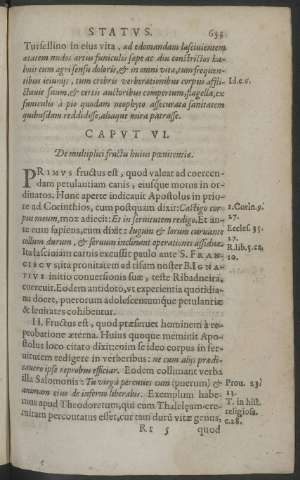 STATVS. 633
Tursellino in eius vita, ad edomandam lasciuientem
ætatem nudos artus funiculis sæpe ac diu constrictos ha-
buit cum agri sensu doloris, & in omni vita, cum frequen-
tibus ieiuniis, tum crebris verberationibus corpus affli-
ctauit suum, & certis auctoribus compertum, flagella, ex Id. c. 1.
funiculis à pio quodam neophyto asseruata sanitatem
quibusdam reddidisse, aliaque mira patrasse.
CAPVT VI.
De multiplici fructu huius pœnitentiæ.
PRIMVS fructus est, quod valeat ad coercen-
dam petulantiam carnis, eiusque motus in or-
dinatos. Hunc aperte indicauit Apostolus in prio-
re ad Corinthios, cum postquam dixit: Castigo cor- 1. Corin. 9.
pus meum, mox adiecit: Et in seruitutem redigo. Et an- 27.
te eum sapiens, cum dixit: Iugum & lorum curuant Eccles. 33.
collum durum, & seruum inclinant operationes assiduæ. 27.
Ita lasciuiam carnis excussit paulo ante S. FRAN- R. lib. 5. c.
CISCVS, ita pronitatem ad id sam noster B. IGNA- 10.
TIVS initio conuersionis suæ, teste Ribadneira,
coercuit. Eodem antidoto, vt experientia quotidia-
na docet, puerorum adolescentumque petulantiæ
& leuitates cohibentur.
II. Fructus est, quod præseruet hominem à re-
probatione æterna. Huius quoque meminit Apo-
stolus loco citato dixitque in se ideo corpus in ser-
uitutem redigere in verberibus: ne cum aliis prædi-
cauero ipse reprobus efficiar. Eodem collimant verba
illa Salomonis: Tu virga percuties eum (puerum) & Prou. 23.
animam eius de inferno liberabis. Exemplum habe- 13.
mus apud Theodoretum, qui cum Thalelæum ere- T. in hist.
mitam percontatus esset, cur tam duru vitæ genus, religiosa.
Rr 5 quod c. 28.